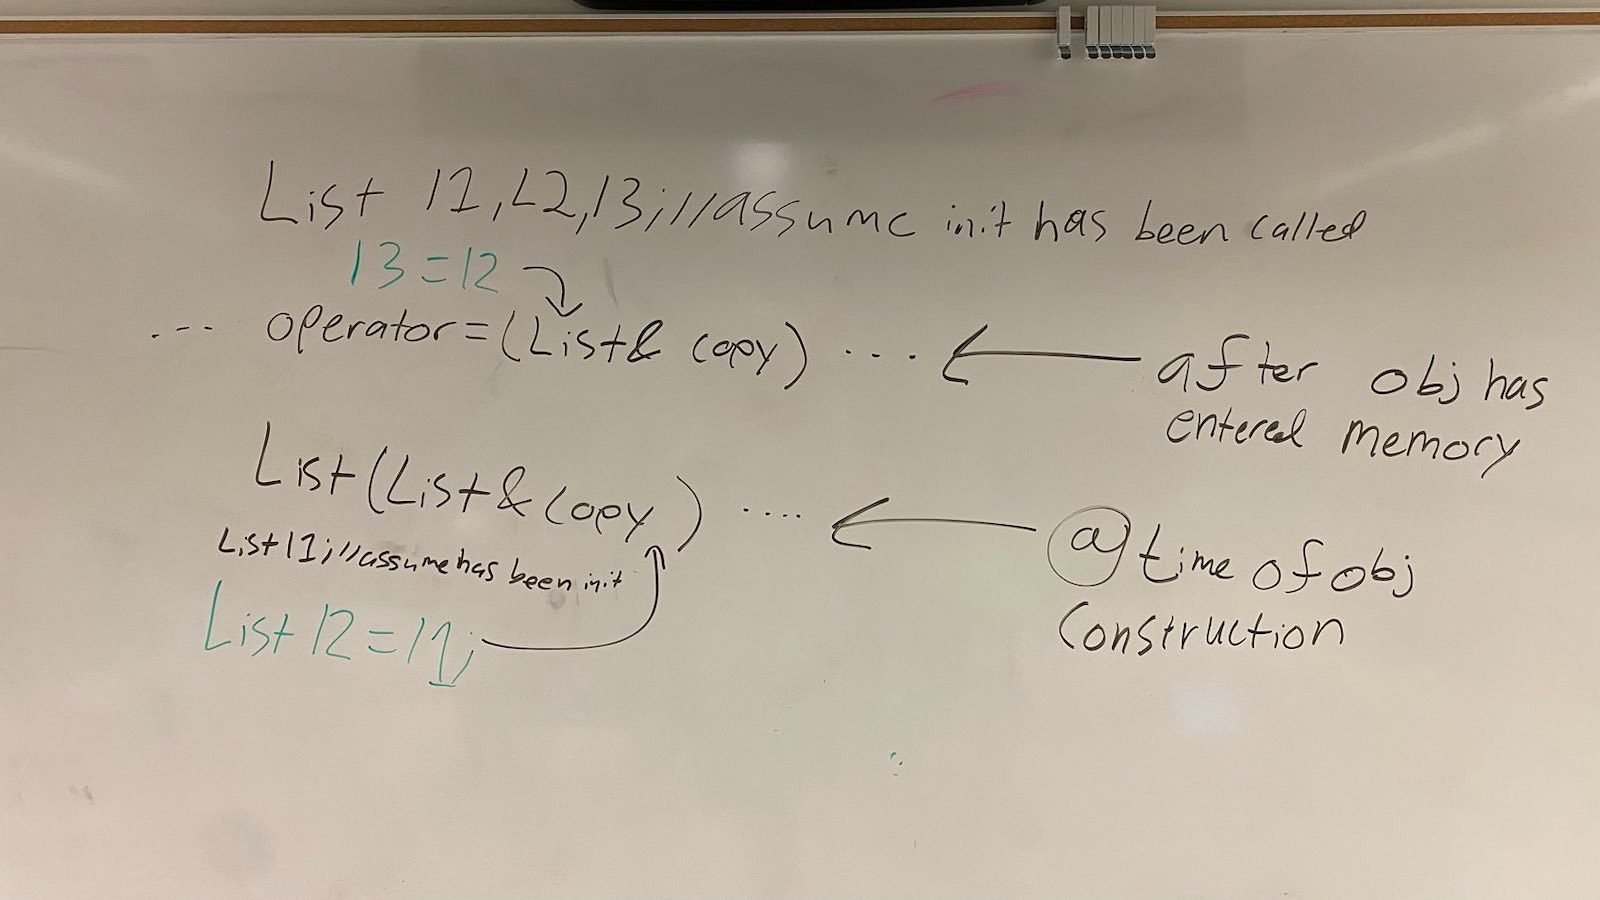 List l1, L2, l3; //assume init has been called
l3 = l2
... operator=(List& copy) ...
after obj has
entered memory
List(List& copy) ....
@ time of obj
construction
List l1; //assume has been init
List l2 = l1;